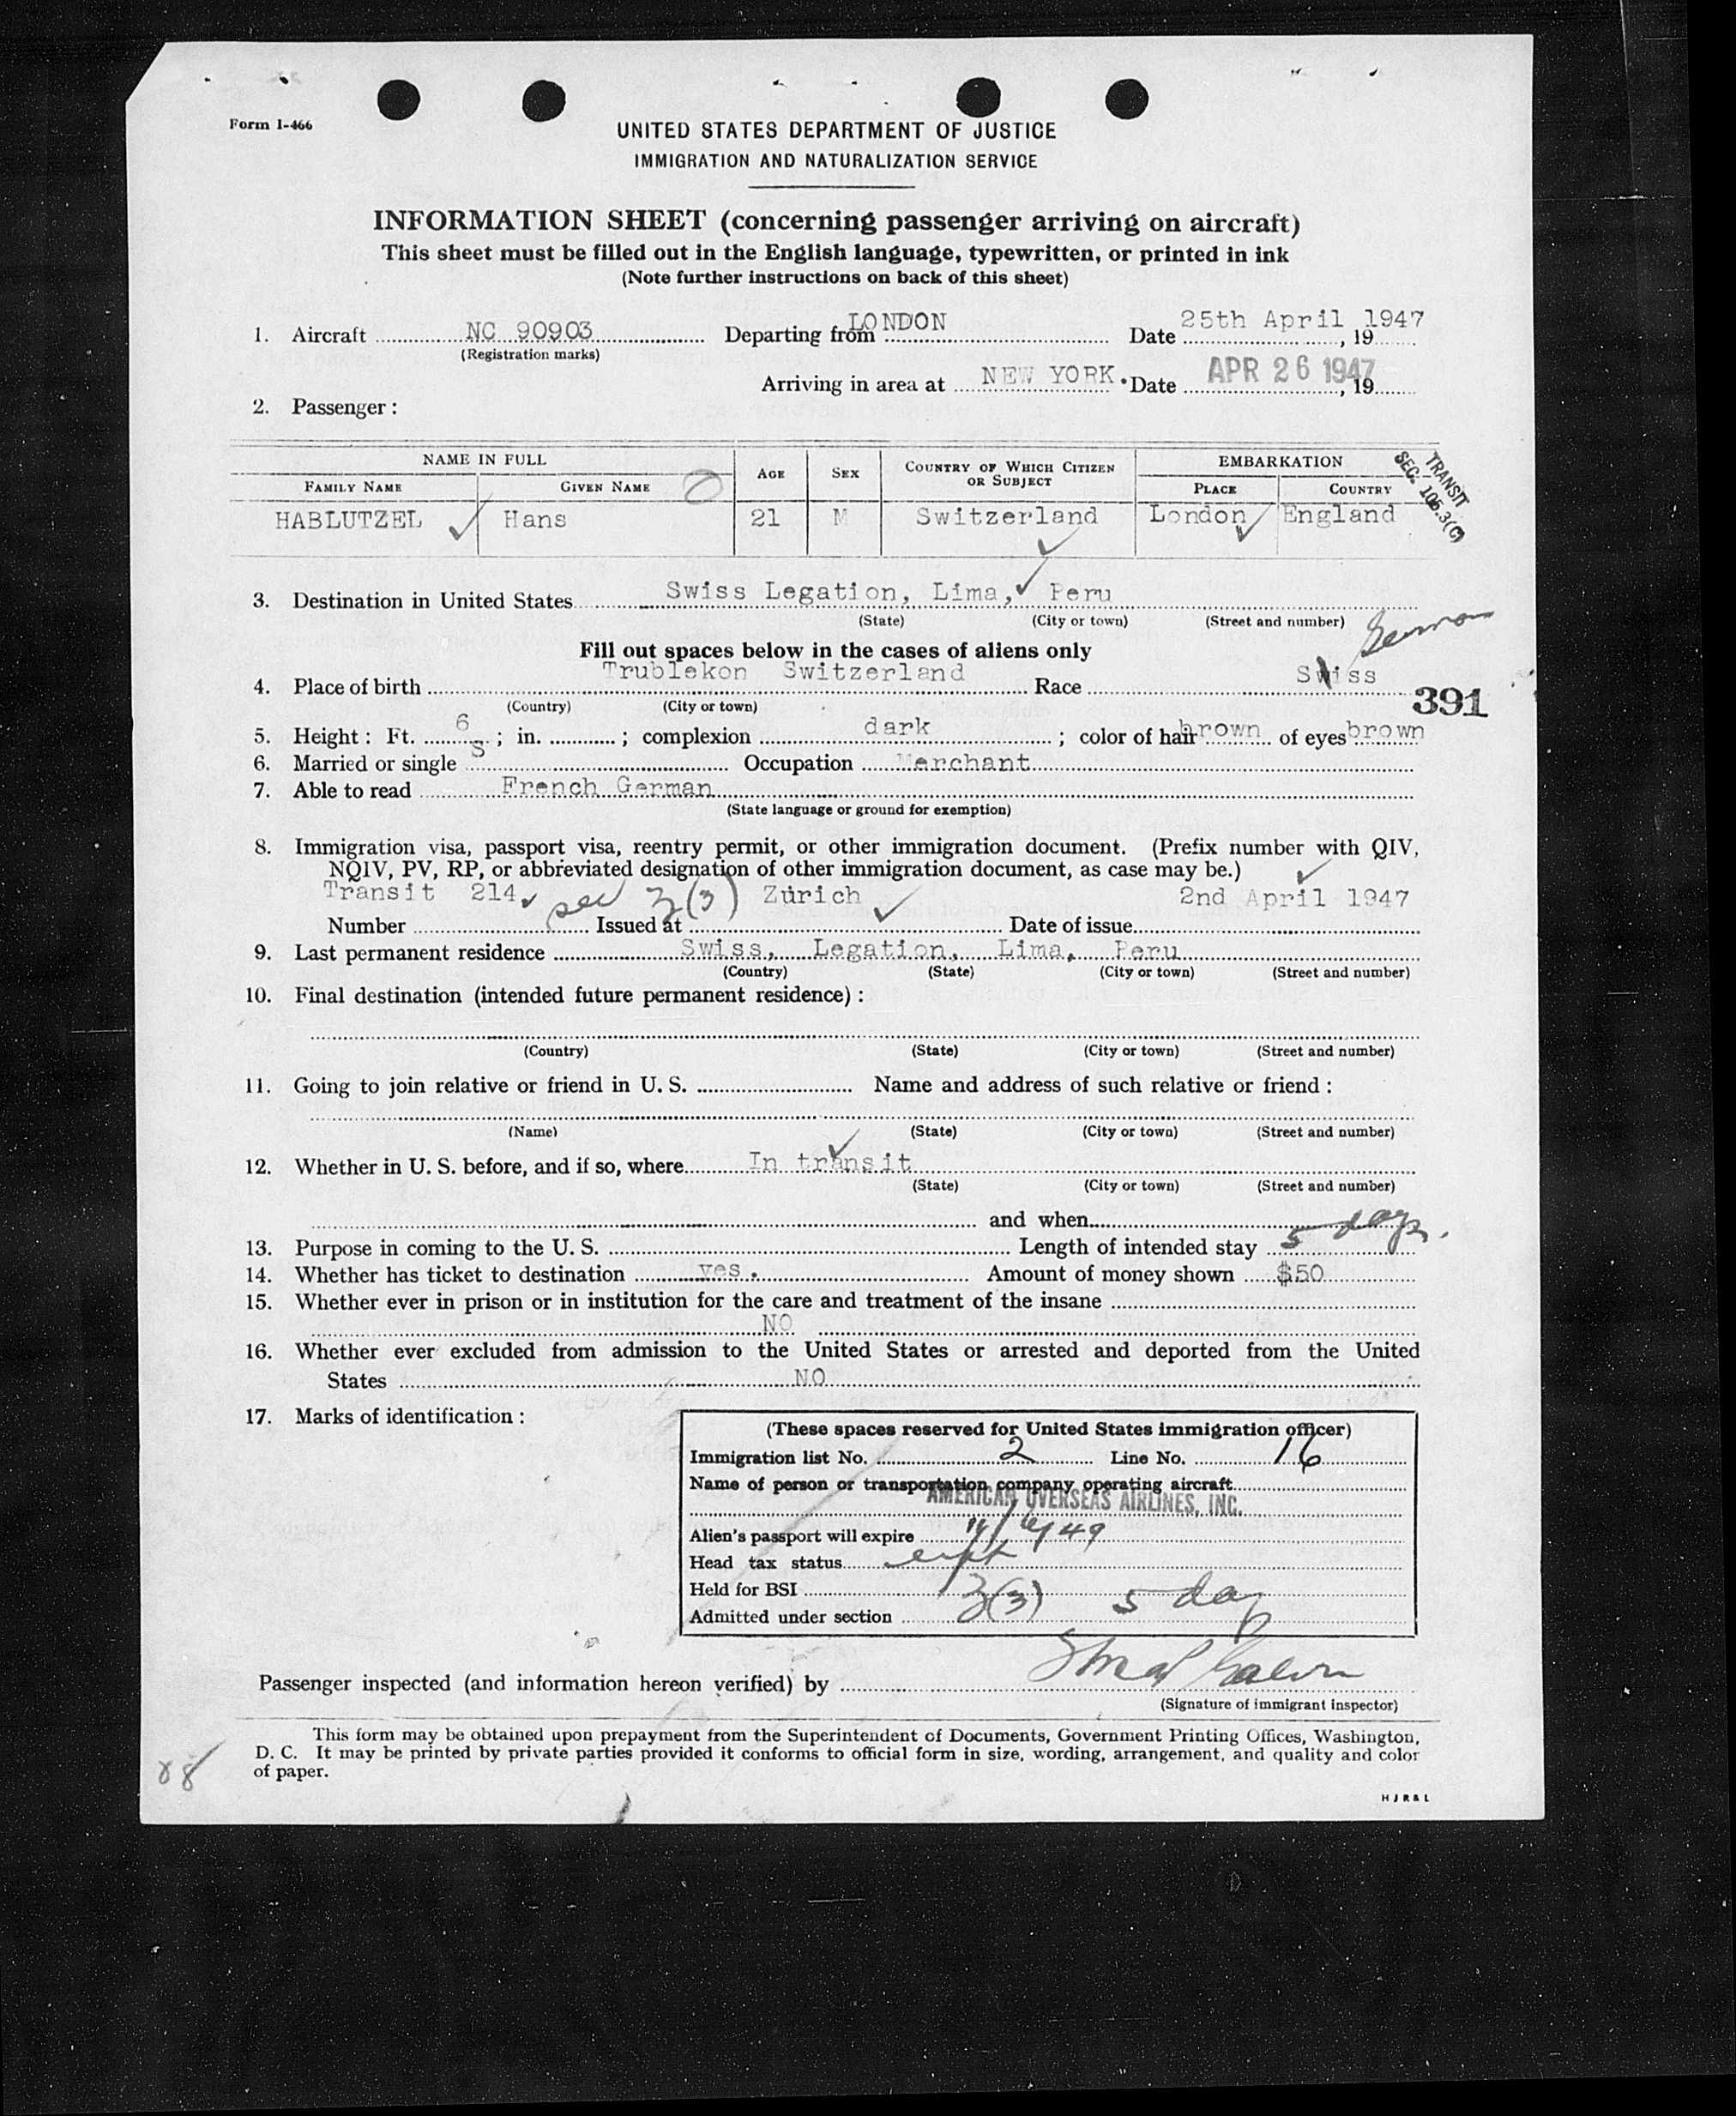 Form I-466
UNITED STATES DEPARTMENT OF JUSTICE
IMMIGRATION AND NATURALIZATION SERVICE
INFORMATION SHEET (concerning passenger arriving on aircraft)
This sheet must be filled out in the English language, typewritten, or printed in ink
(Note further instructions on back of this sheet)
1. Aircraft NC 90903 Departing from LONDON Date 25th April 1947, 19
(Registration marks)
Arriving in area at NEW YORK. Date APR 26 1947, 19
2. Passenger:
NAME IN FULL AGE SEX COUNTRY OF WHICH CITIZEN OR SUBJECT EMBARKATION
FAMILY NAME GIVEN NAME PLACE COUNTRY
TRANSIT
SEC. 105.3(C)
HABLUTZEL Hans 21 M Switzerland London England
3. Destination in United States Swiss Legation, Lima, Peru
(State) (City or town) (Street and number)
German
Fill out spaces below in the cases of aliens only
4. Place of birth Trublekon Switzerland Race Swiss
(Country) (City or town)
391
5. Height: Ft. 6; in. ; complexion dark; color of hair brown of eyes brown
6. Married or single S Occupation Merchant
7. Able to read French German
(State language or ground for exemption)
8. Immigration visa, passport visa, reentry permit, or other immigration document. (Prefix number with QIV,
NQIV, PV, RP, or abbreviated designation of other immigration document, as case may be.)
Transit 214 sec 3(3) Zürich 2nd April 1947
Number Issued at Date of issue
9. Last permanent residence Swiss, Legation, Lima, Peru
(Country) (State) (City or town) (Street and number)
10. Final destination (intended future permanent residence):
(Country) (State) (City or town) (Street and number)
11. Going to join relative or friend in U. S. Name and address of such relative or friend:
(Name) (State) (City or town) (Street and number)
12. Whether in U. S. before, and if so, where In transit
(State) (City or town) (Street and number)
and when
13. Purpose in coming to the U. S. Length of intended stay 5 days.
14. Whether has ticket to destination yes. Amount of money shown $50
15. Whether ever in prison or in institution for the care and treatment of the insane
NO
16. Whether ever excluded from admission to the United States or arrested and deported from the United
States NO
17. Marks of identification:
(These spaces reserved for United States immigration officer)
Immigration list No. 2 Line No. 16
Name of person or transportation company operating aircraft
AMERICAN OVERSEAS AIRLINES, INC.
Alien's passport will expire 49
Head tax status
Held for BSI
Admitted under section 3(3) 5 day
Passenger inspected (and information hereon verified) by
(Signature of immigrant inspector)
This form may be obtained upon prepayment from the Superintendent of Documents, Government Printing Offices, Washington,
D. C. It may be printed by private parties provided it conforms to official form in size, wording, arrangement, and quality and color
of paper.
H J R & L